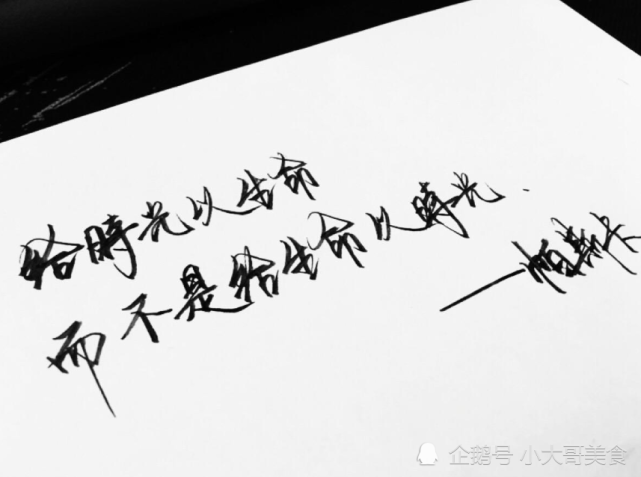 給時光以生命
而不是給生命以時光.
—帕斯卡
企鹅号 小大哥美食